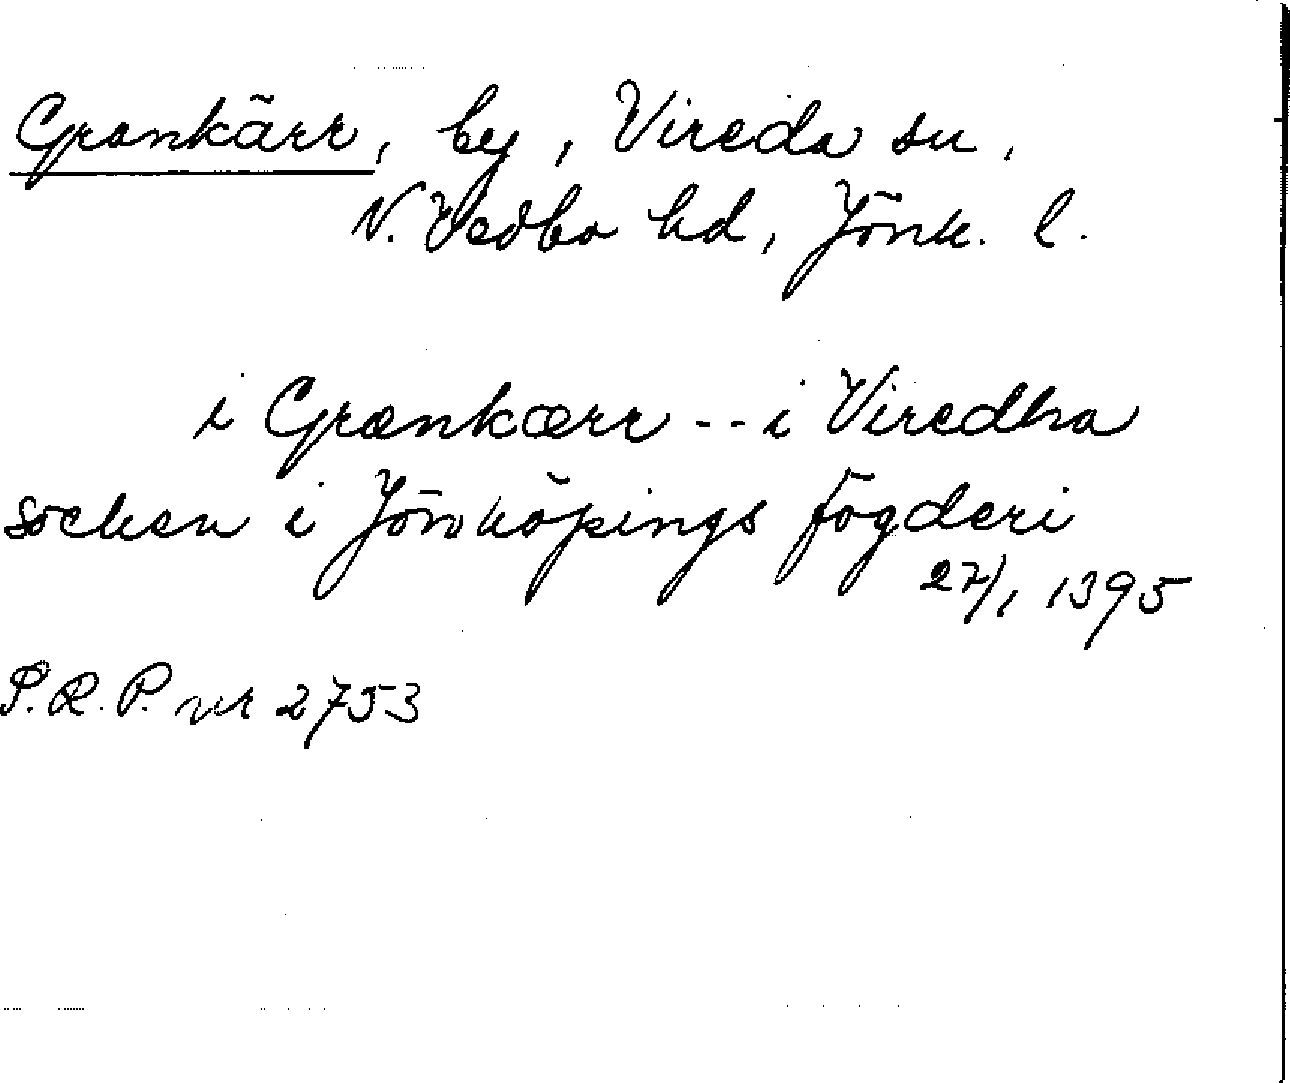 Grankärr, by, Vireda sn,
N. Vedbo hd, Jönk. l.
i Grænkærr -- i Viredha
socken i Jönköpings fögderi
27/1 1395
S.R.P. nr 2753